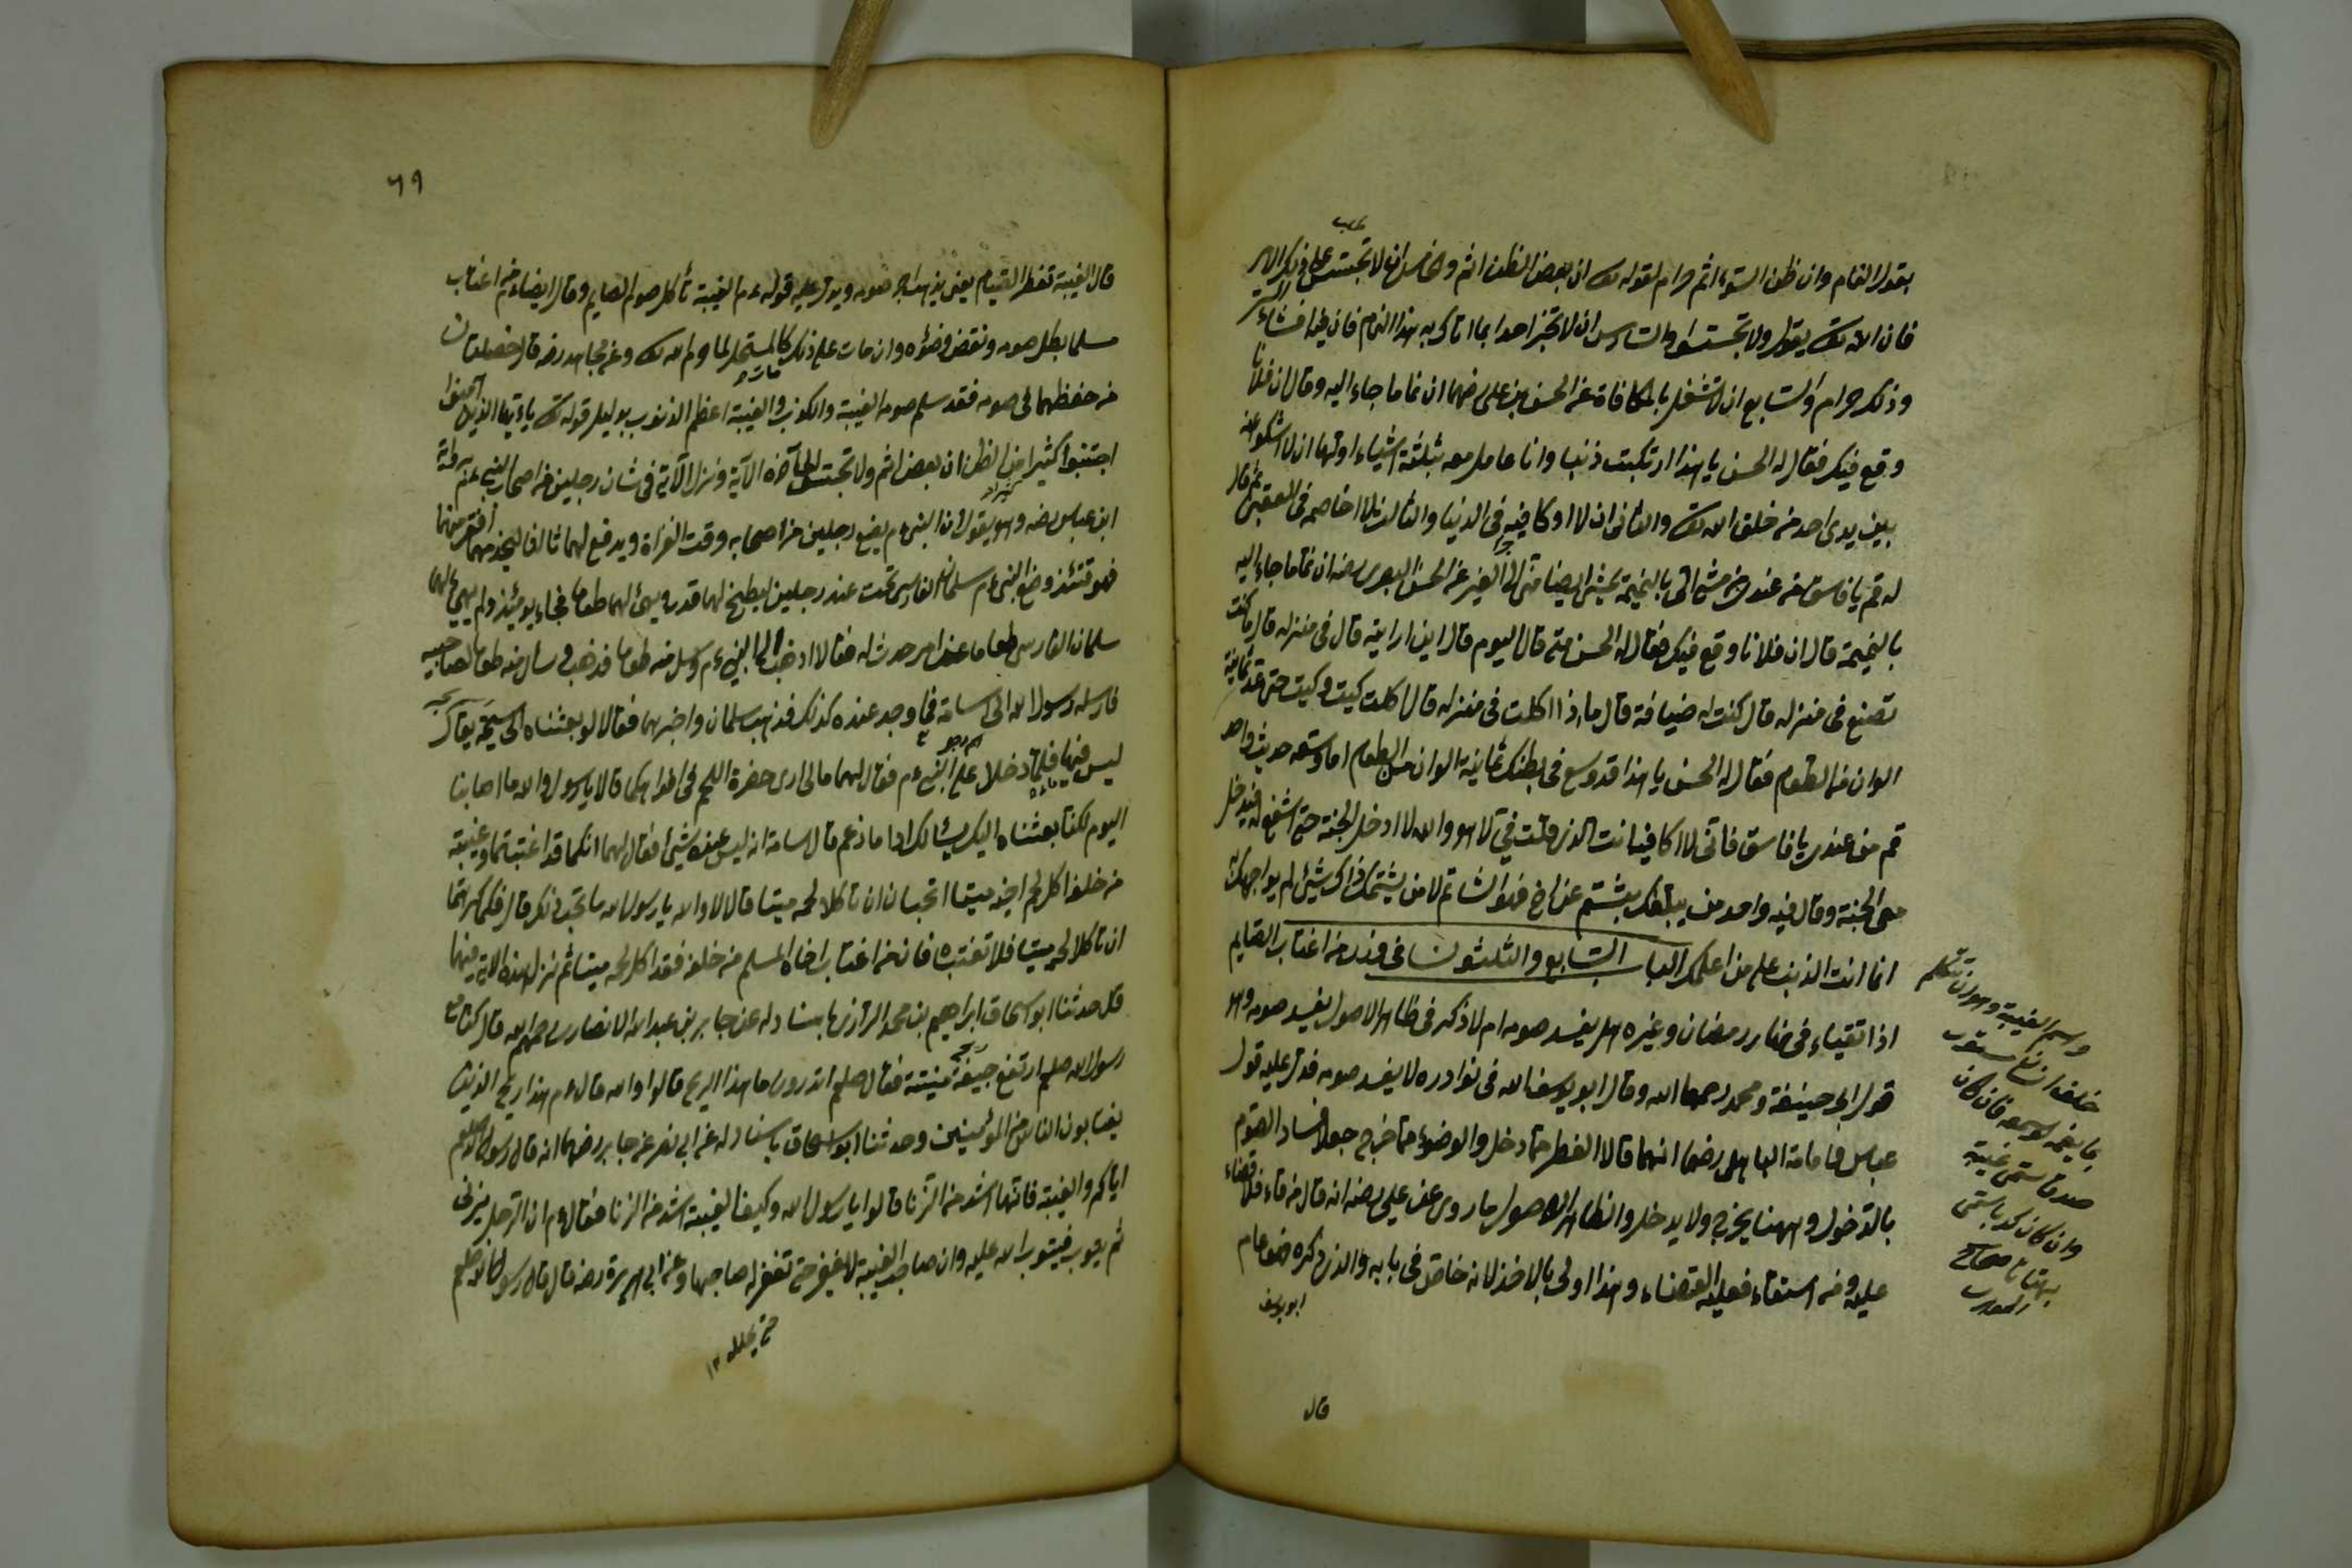 بقول النمام وان ظن السوء اثم حرام لقوله تع ان بعض الظن اثم والخامس ان لا تجسس على ذلك الامر
فان الله تع يقول ولا تجسسوا والسادس ان لا تخبر احدا بما اتاك به هذا النمام فان فيه افشاء السر
وذلك حرام والسابع ان لا تشغل بالمكافاة عن الحسن بن على رضهما ان نماما جاء اليه وقال ان فلانا
وقع فيك فقال له الحسن يا هذا ارتكبت ذنبا وانا عامل معه بثلثة اشياء اولها ان لا اشكو عنه
بين يدى احد من خلق الله تع والثانى ان لا اوكافيه فى الدنيا والثالث لا اخاصمه فى العقبى ثم قال
له قم يا فاسق من عندى من مشى الى بالنميمة يمشى ايضا منى الى الغير عن الحسن البصرى رضه ان نماما جاء اليه
بالنميمة قال ان فلانا وقع فيك فقال له الحسن متى قال اليوم قال اين ارايته قال فى منزله قال ما كنت
تصنع فى منزله قال كنت له ضيافة قال ماذا اكلت فى منزله قال اكلت كيت وكيت حتى عد ثمانية
الوان من الطعام فقال له الحسن يا هذا قد وسع فى بطنك ثمانية الوان من الطعام اما وسعه حديث واحد
قم من عندى يا فاسق فانى لا اكافيه انت الذى قلت فى لا هو والله لا ادخل الجنة حتى اشفع له فيدخل
معى الجنة وقال فيه واحد من يبلغك بشتم عن اخ فهو الشاتم لا من يشتمك ذاك شىء لم يواجهك
انما انت الذنب على من اعلمك الباب السابع والثلثون فى من اغتاب الصايم
اذا تقياء فى نهار رمضان وغيره هل يفسد صومه ام لا ذكر فى ظاهر الاصول يفسد صومه وهو
قول ابى حنيفة ومحمد رحمهما الله وقال ابو يوسف الله فى نوادره لا يفسد صومه فدل عليه قول
عباس وامامة الباهلى رضهما انهما قالا الفطر مما دخل والوضوء مما خرج جعلا فساد الصوم
بالدخول وههنا يخرج ولا يدخل والظاهر الاصول ما روى عن على رضه انه قال من قاء فلا قضاء
عليه ومن استقاء فعليه القضاء وهذا اولى بالاخذ لانه خاص فى بابه والذى ذكره عام
ابو يوسف
قال
وسم الغيبة وهو ان يتكلم
خلف انسان مستور
بما يغمه لو سمعه فان كان
صدقا سمى غيبة
وان كان كذبا سمى
بهتانا صحاح
٦٩
قال الغيبة تفطر الصيام يعنى يذهب اجر صومه ويدل عليه قوله ءم الغيبة تأكل صوم الصايم وقال ايضا من اغتاب
مسلما بطل صومه ونقض وضؤه وان مات على ذلك مات كالمستحل لما حرم الله تع وعن مجاهد رضه قال خصلتان
من حفظهما فى صومه فقد سلم صومه الغيبة والكذب والغيبة اعظم الذنوب بدليل قوله تع يا ءيها الذين آمنوا
اجتنبوا كثيرا من الظن ان بعض اثم ولا تجسسوا الى آخره الآية ونزل الآية فى شان رجلين من اصحاب النبى ءم
ابن عباس رضه وهو يقول ان النبى ءم يضع رجلين من اصحابه وقت الغزاة ويدفع لهما ثالثا ليخدمهما افقر منهما
فوقتئذ وضع النبى ءم سلمان الفارسى تحت عند رجلين ليطبخ لهما قدرا ويهيئ لهما طعاما فجاء يومئذ ولم يهيئ لهما
سلمان الفارسى طعاما عن امر حدث له فقالا اذهب الى النبى ءم وسل منه طعاما فذهب وسال منه طعاما لصاحبيه
فارسله رسول الله الى اسامة فما وجد عنده كذلك فذهب سلمان واخبرهما فقالا لو بعثناه الى سميحة يقال
ليس فيها ماء فلما دخلا على النبى ءم فقال لهما مالى ارى حضرة اللحم فى افواهكما قالا يا رسول والله ما اصابنا
اليوم لكنا بعثناه اليك يسالك اداما زعم قال اسامة انه ليس عنده شئ فقال لهما انكما قد اغتبتما وغيبة
من خلفه اكل لحم اخيه ميتا اتحبان ان تاكلا لحمه ميتا قالا لا والله يا رسول الله ما نحب ذلك قال فكما كرهتما
ان تاكلا لحمه ميتا فلا تغتبوه فانه من اغتاب اخاه المسلم من خلفه فقد اكل لحمه ميتا ثم نزل هذه الاية فيهما
قال حدثنا ابو اسحاق ابراهيم بن محمد الرازى باسناد له عن جابر بن عبد الله الانصارى رحمهم الله قال كنا مع
رسول الله صلعم ارتفع ريح جيفة منتنة فقال صلعم اتدرون ما هذا الريح قالوا لا والله قال ءم هذا ريح الذين
يغتابون الناس من المؤمنين وحدثنا ابو اسحاق باسناد له عن ابى نضر عن جابر رضهما انه قال رسول الله صلعم
اياكم والغيبة فانها اشد من الزنا قالوا يا رسول الله وكيف الغيبة اشد من الزنا فقال ءم ان الرجل يزنى
ثم يتوب فيتوب الله عليه وان صاحب الغيبة لا يغفر حتى تغفر له صاحبها وعن ابى هريرة رضه قال قال رسول الله صلعم